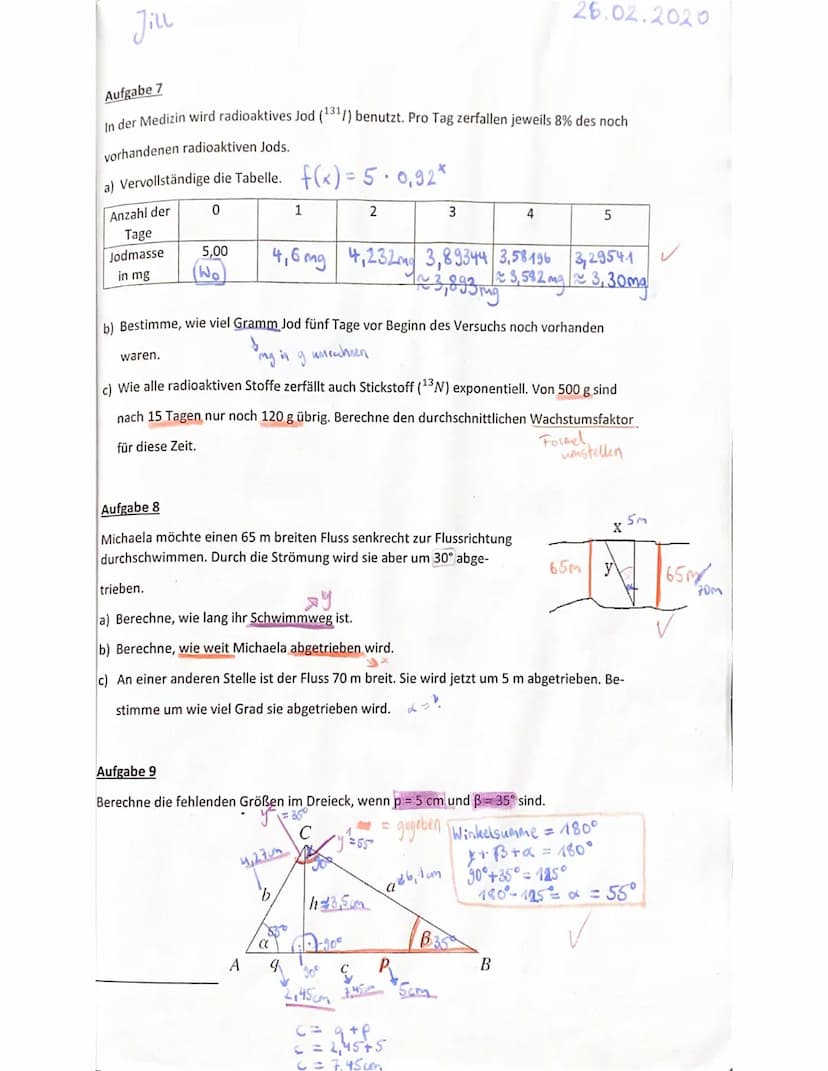 Jill
26.02.2020
Aufgabe 7
In der Medizin wird radioaktives Jod (¹³¹I) benutzt. Pro Tag zerfallen jeweils 8% des noch
vorhandenen radioaktiven Jods.
a) Vervollständige die Tabelle. f(x) = 5 · 0,92ˣ
Anzahl der Tage 0 1 2 3 4 5
Jodmasse in mg 5,00 (W₀) 4,6 mg 4,232mg 3,89344 ≈ 3,893mg 3,58196 ≈ 3,582 mg 3,29541 ≈ 3,30mg ✓
b) Bestimme, wie viel Gramm Jod fünf Tage vor Beginn des Versuchs noch vorhanden
waren. mg in g umrechnen
c) Wie alle radioaktiven Stoffe zerfällt auch Stickstoff (¹³N) exponentiell. Von 500 g sind
nach 15 Tagen nur noch 120 g übrig. Berechne den durchschnittlichen Wachstumsfaktor
für diese Zeit. Formel
umstellen
Aufgabe 8
Michaela möchte einen 65 m breiten Fluss senkrecht zur Flussrichtung
durchschwimmen. Durch die Strömung wird sie aber um 30° abge-
trieben.
x 5m
65m y α 65m 70m
✓
↗ y
a) Berechne, wie lang ihr Schwimmweg ist.
b) Berechne, wie weit Michaela abgetrieben wird.
↘ x
c) An einer anderen Stelle ist der Fluss 70 m breit. Sie wird jetzt um 5 m abgetrieben. Be-
stimme um wie viel Grad sie abgetrieben wird. α = ?
Aufgabe 9
Berechne die fehlenden Größen im Dreieck, wenn p = 5 cm und β = 35° sind.
= gegeben
Winkelsumme = 180°
γ + β + α = 180°
90° + 35° = 125°
180° - 125° = α = 55°
✓
= 35°
C
= 55
90°
4,27cm
b
a ≈ 6,1cm
h ≈ 3,5cm
α 55°
90°
β 35°
A q 90° c p B
2,45cm 7,45cm 5cm
c = q + p
c = 2,45 + 5
c = 7,45cm